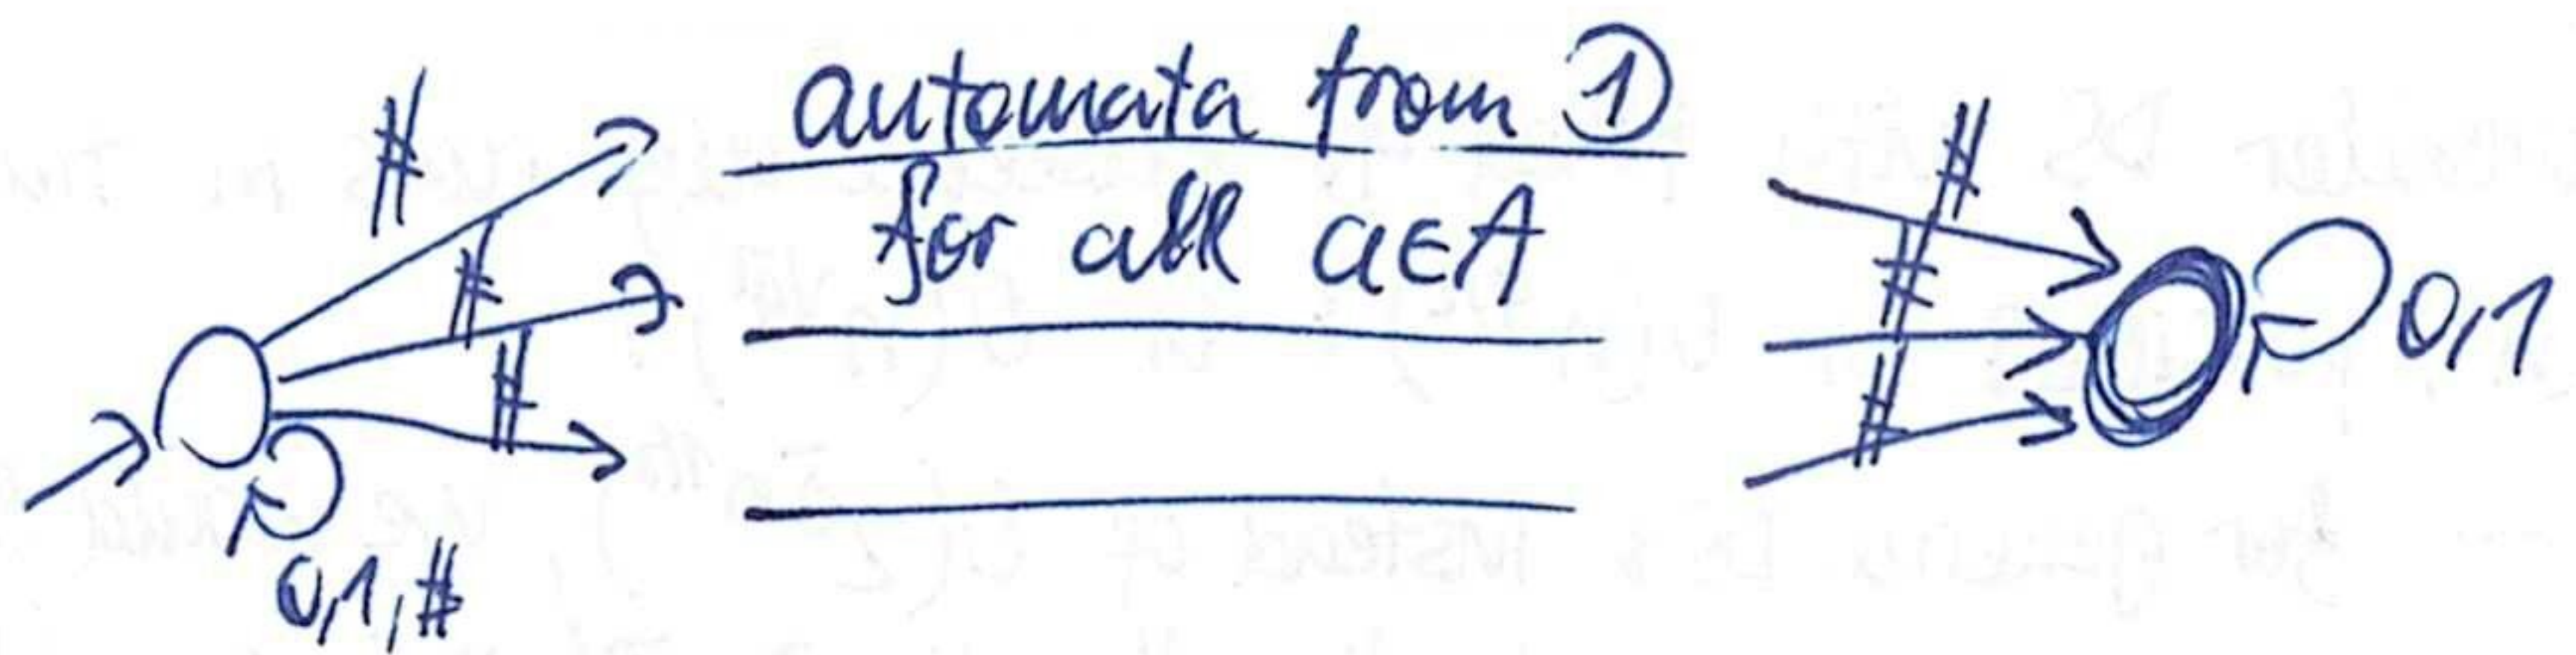 automata from ①
for all a∈A
#
#
#
0,1,#
#
#
#
0,1